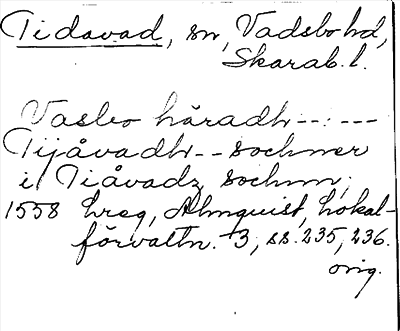 Tidavad, sn, Vadsbo hd,
Skarab. l.
Vasbo häradh--:---
Tijåvadh-- sochner
i Tiåvadz sochnn;
1558 hreg, Almquist, Lokal-
förvaltn. 3, ss. 235, 236.
orig.